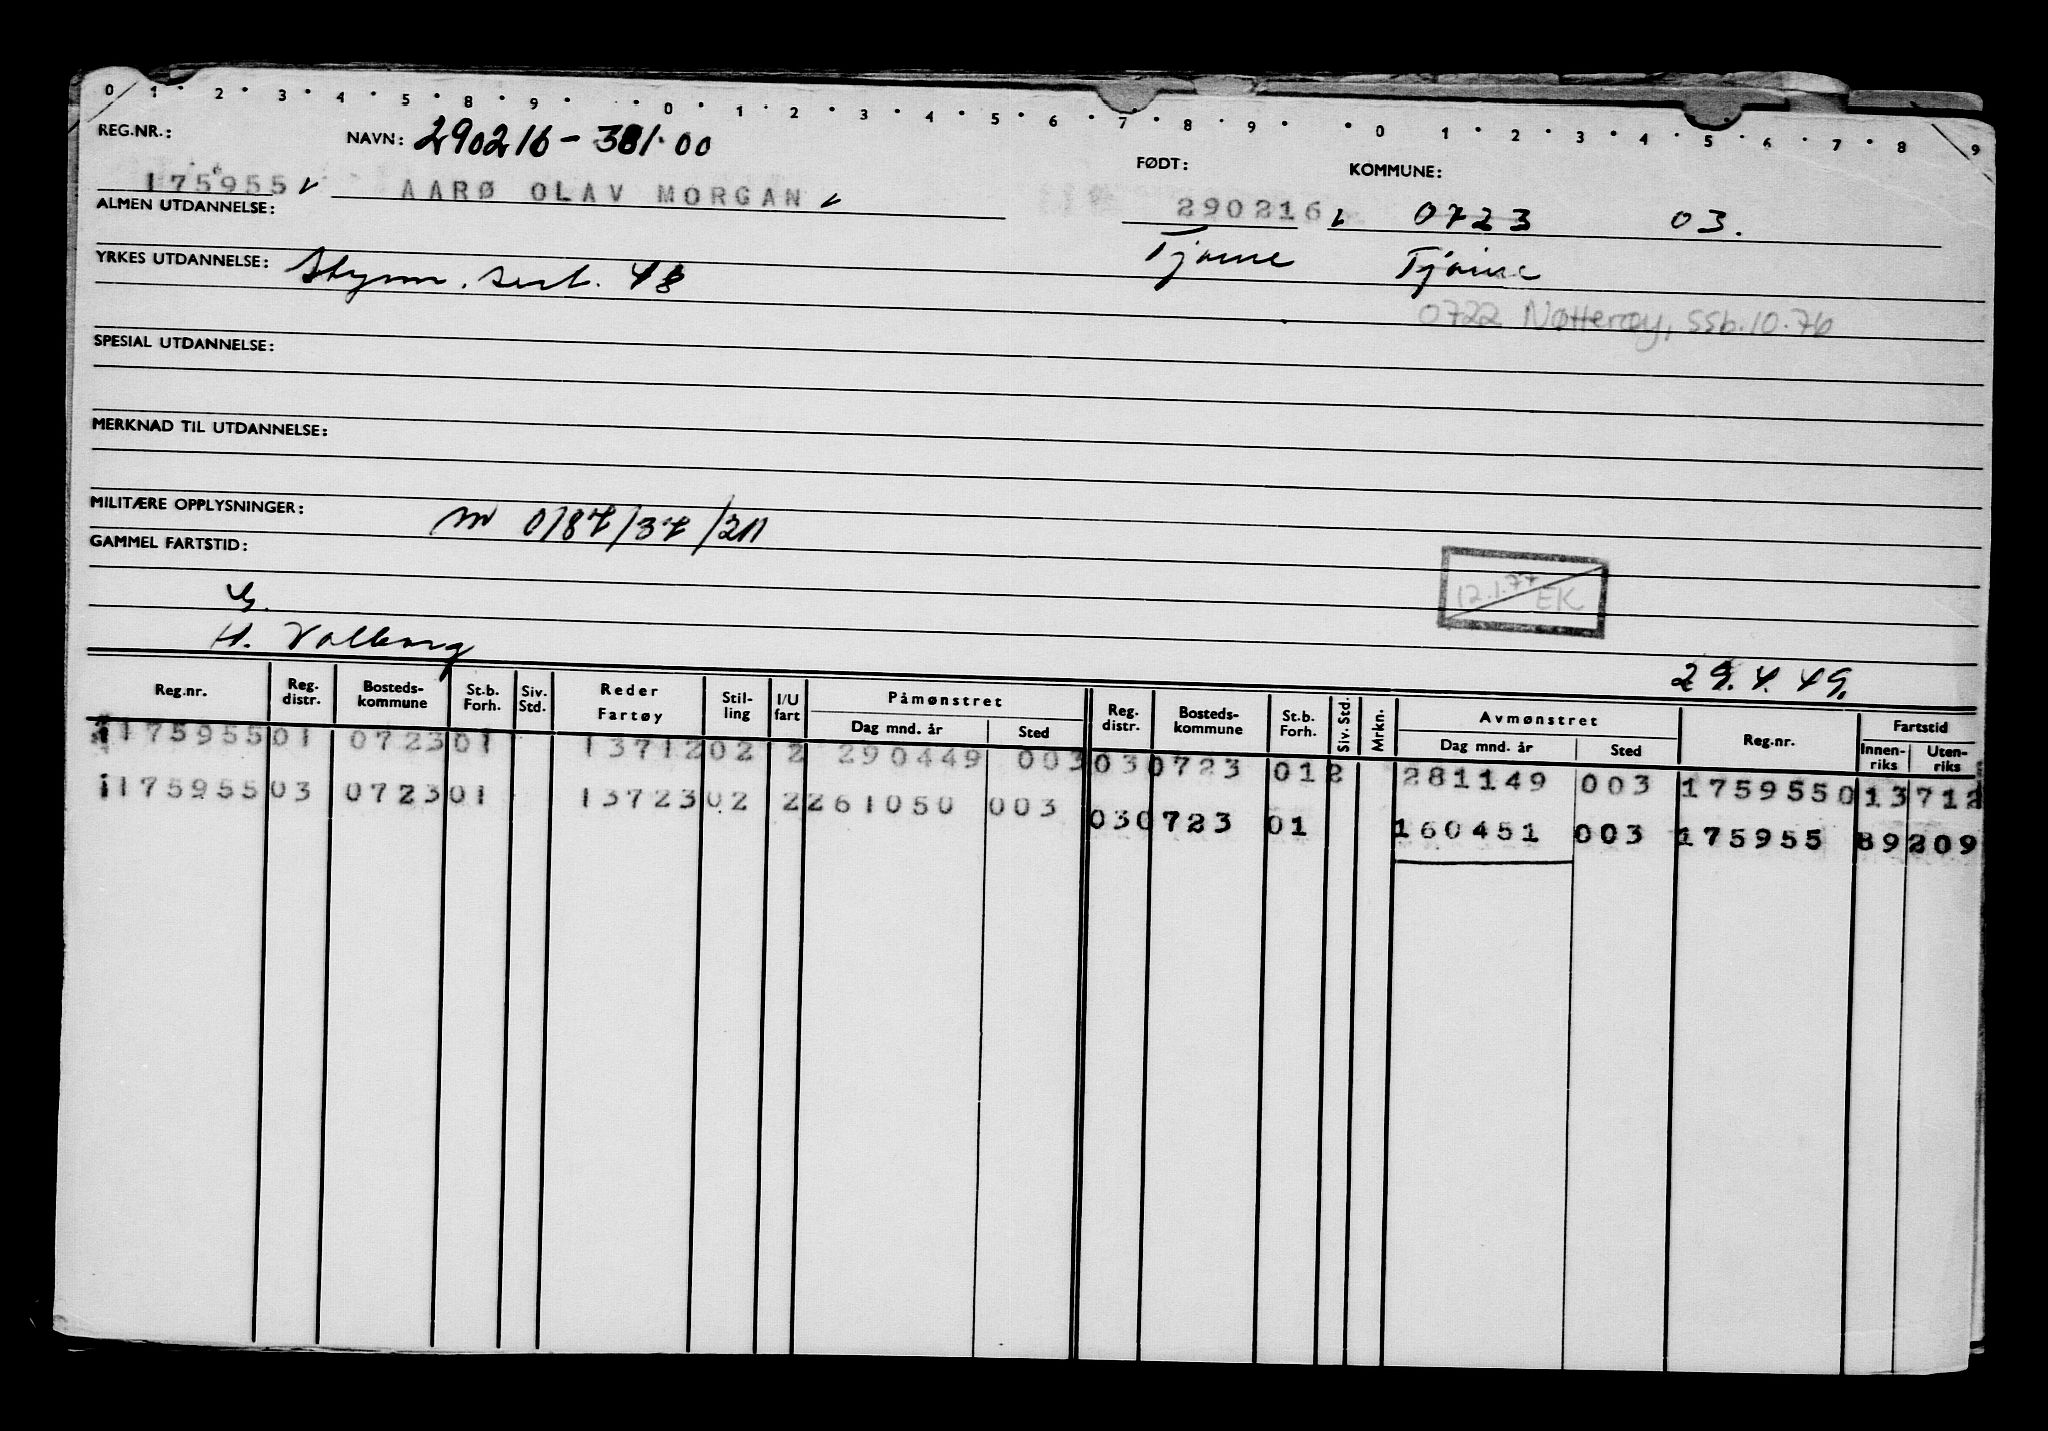 0 1 2 3 4 5 8 9 0 1 2 3 4 5 6 7 8 9 0 1 2 3 4 5 6 7 8 9
REG.NR.: NAVN: 290216 - 381.00 FØDT: KOMMUNE:
175955 AARØ OLAV MORGAN 290216 0723 03.
ALMEN UTDANNELSE: Tjøme Tjøme
YRKES UTDANNELSE: Styrm. sert. 48
0722 Nøtterøy, ssb.10.76
SPESIAL UTDANNELSE:
MERKNAD TIL UTDANNELSE:
MILITÆRE OPPLYSNINGER: m 0/87/37/211
GAMMEL FARTSTID:
12.1.77 EK
G.
H. Valborg 29.4.49.
Reg.nr. Reg. distr. Bosteds-kommune St.b. Forh. Siv. Std. Reder Fartøy Stil-ling I/U fart Påmønstret Dag mnd. år Sted Reg. distr. Bosteds-kommune St.b. Forh. Siv. Std. Mrkn. Avmønstret Dag mnd. år Sted Reg.nr. Fartstid Innen-riks Uten-riks
1175955 01 0723 01 13712 02 2 290449 003 03 0723 01 2 281149 003 175955 013 712
1175955 03 0723 01 13723 02 2 261050 003 03 0723 01 160451 003 175955 89 209